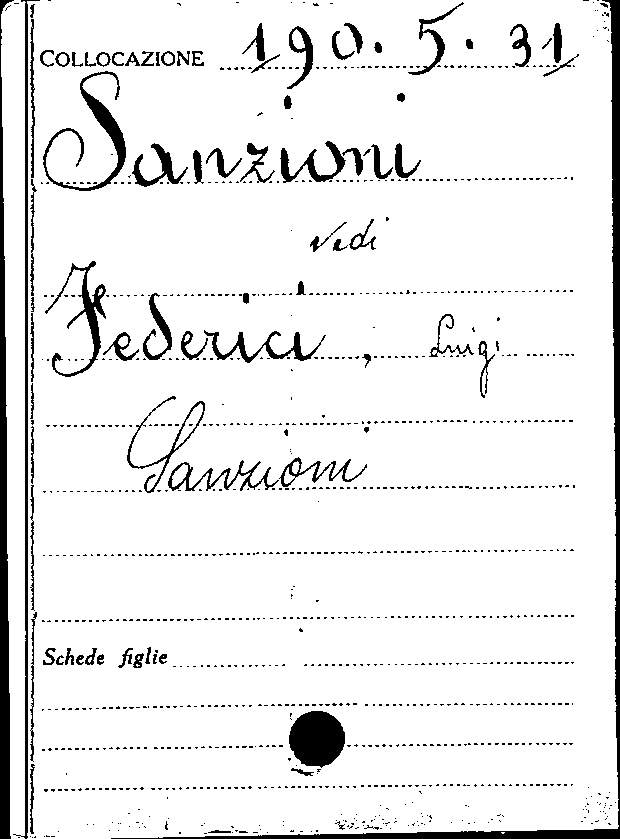 COLLOCAZIONE 190.5.31
Sanzioni
vedi
Federici, Luigi
Sanzioni
Schede figlie